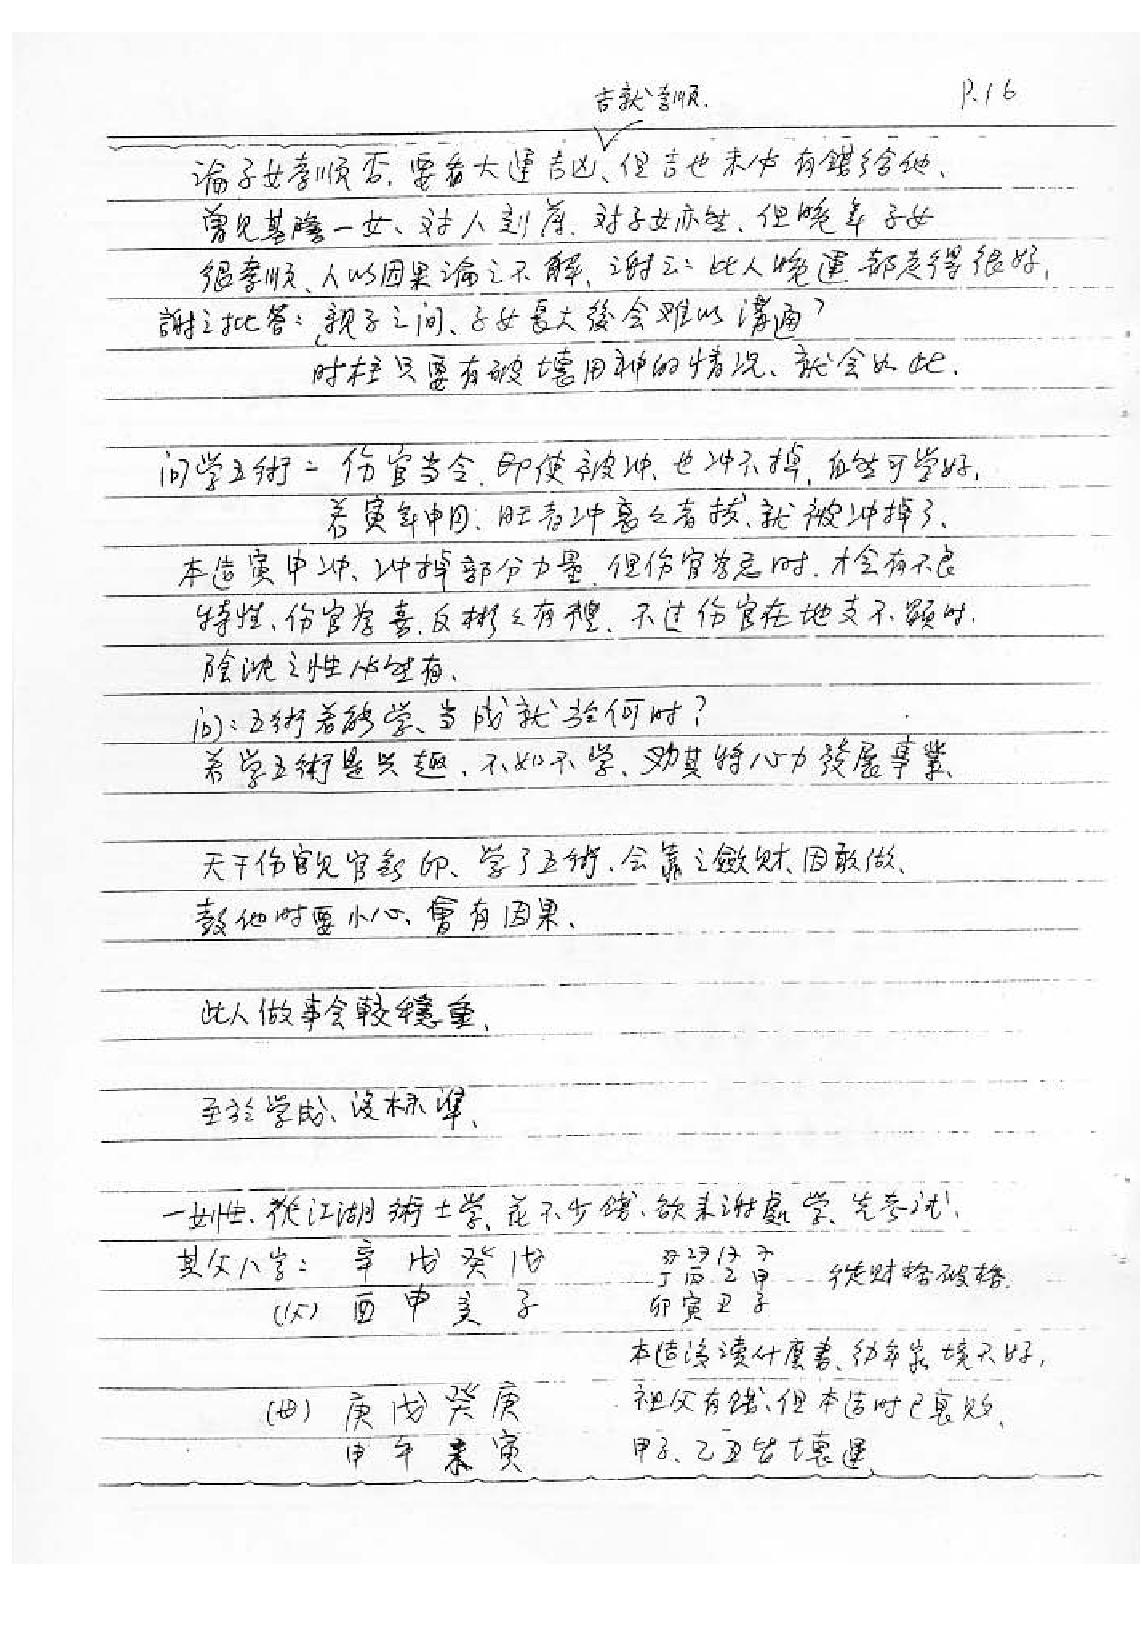 P.16
吉就孝順.
論子女孝順否,要看大運吉凶、但吉也未必有錢給他、
曾見基隆一女、对人刻薄,对子女亦然、但晚年子女
很孝順、人以因果論之不解,謝云:此人晚運都走得很好,
謝之批答:親子之间、子女長大後会难以溝通?
时柱只要有破壞用神的情況、就会如此.
问学五術= 伤官当令,即使被冲、也冲不掉,自然可学好,
若寅年申月:旺者冲衰之者拔、就被冲掉了、
本造寅申冲、冲掉部分力量,但伤官為忌时,才会有不良
特性、伤官為喜,反彬々有禮,不过伤官在地支不顕时.
陰沈之性必然有、
问:五術若能学、当成就於何时?
若学五術是兴趣、不如不学、劝其将心力發展事業、
天干伤官見官無印、学了五術,会靠之斂财、因敢做、
教他时要小心、會有因果、
此人做事会較穩重、
至於学歷、沒标準、
一女性、從江湖術士学,花不少錢、欲来謝處学,先参試、
其父八字: 辛 戊 癸 戊
(父) 酉 申 亥 子
丁 丙 乙 甲 從财格破格.
卯 寅 丑 子
本造沒讀什麼書、幼年家境不好,
(母) 庚 戊 癸 庚
祖父有錢、但本造时已衰敗、
申 午 未 寅
甲子、乙丑皆壞運、